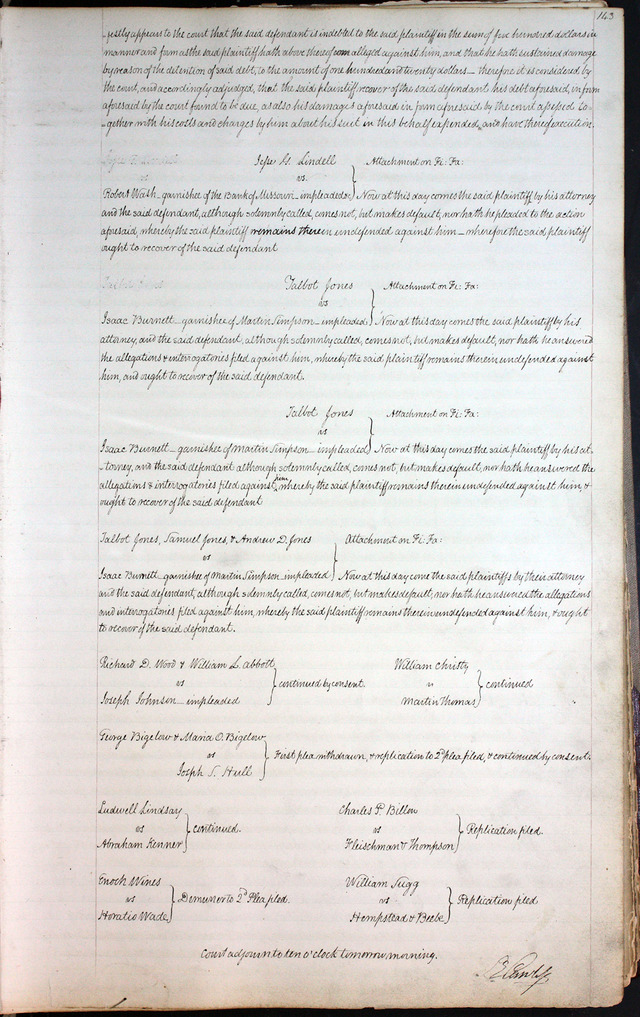 143
-jestly appears to the court that the said defendant is indebted to the said plaintiff in the sum of five hundred dollars in
manner and form as the said plaintiff hath above thereof alleged against him, and that he hath sustained damage
by reason of the detention of said debt, to the amount of one hundred and twenty dollars — therefore it is considered by
the court, and accordingly adjudged, that the said plaintiff recover of the said defendant his debt aforesaid, in form
aforesaid by the court found to be due, as also his damages aforesaid in form aforesaid by the court assessed to-
-gether with his costs and charges by him about his suit in this behalf expended, and have thereof execution.
Jesse G. Lindell } Attachment on Fi: Fa:
vs
Robert Wash - garnishee of the Bank of Missouri - impleaded } Now at this day comes the said plaintiff by his attorney
and the said defendant, although solemnly called, comes not, but makes default, nor hath he pleaded to the action
aforesaid, whereby the said plaintiff remains therein undefended against him — wherefore the said plaintiff
ought to recover of the said defendant
Talbot Jones } Attachment on Fi: Fa:
vs
Isaac Burnett - garnishee of Martin Simpson - impleaded } Now at this day comes the said plaintiff by his
attorney, and the said defendant, although solemnly called, comes not, but makes default, nor hath he answered
the allegations & interrogatories filed against him, whereby the said plaintiff remains therein undefended against
him, and ought to recover of the said defendant.
Talbot Jones } Attachment on Fi: Fa:
vs
Isaac Burnett - garnishee of Martin Simpson - impleaded } Now at this day comes the said plaintiff by his at-
-torney, and the said defendant although solemnly called, comes not, but makes default, nor hath he answered the
allegations & interrogatories filed against him, whereby the said plaintiff remains therein undefended against him, &
ought to recover of the said defendant
Talbot Jones, Samuel Jones, & Andrew D. Jones } Attachment on Fi: Fa:
vs
Isaac Burnett - garnishee of Martin Simpson - impleaded } Now at this day come the said plaintiffs by their attorney
and the said defendant, although solemnly called, comes not, but makes default, nor hath he answered the allegations
and interrogatories filed against him, whereby the said plaintiff remains therein undefended against him, & ought
to recover of the said defendant.
Richard D. Wood & William L. Abbott
vs } continued by consent.
Joseph Johnson - impleaded
William Christy
vs } continued
Martin Thomas
George Bigelow & Maria O. Bigelow
vs } First plea withdrawn, & replication to 2d plea filed, & continued by consent.
Joseph S. Hull
Ludwell Lindsay
vs } continued.
Abraham Kenner
Charles P. Billon
vs } Replication filed.
Fleischman & Thompson
Enoch Wines
vs } Demurrer to 2d Plea filed.
Horatio Wade
William Sugg
vs } Replication filed
Hempstead & Beebe
Court adjourn to ten o'clock tomorrow morning.